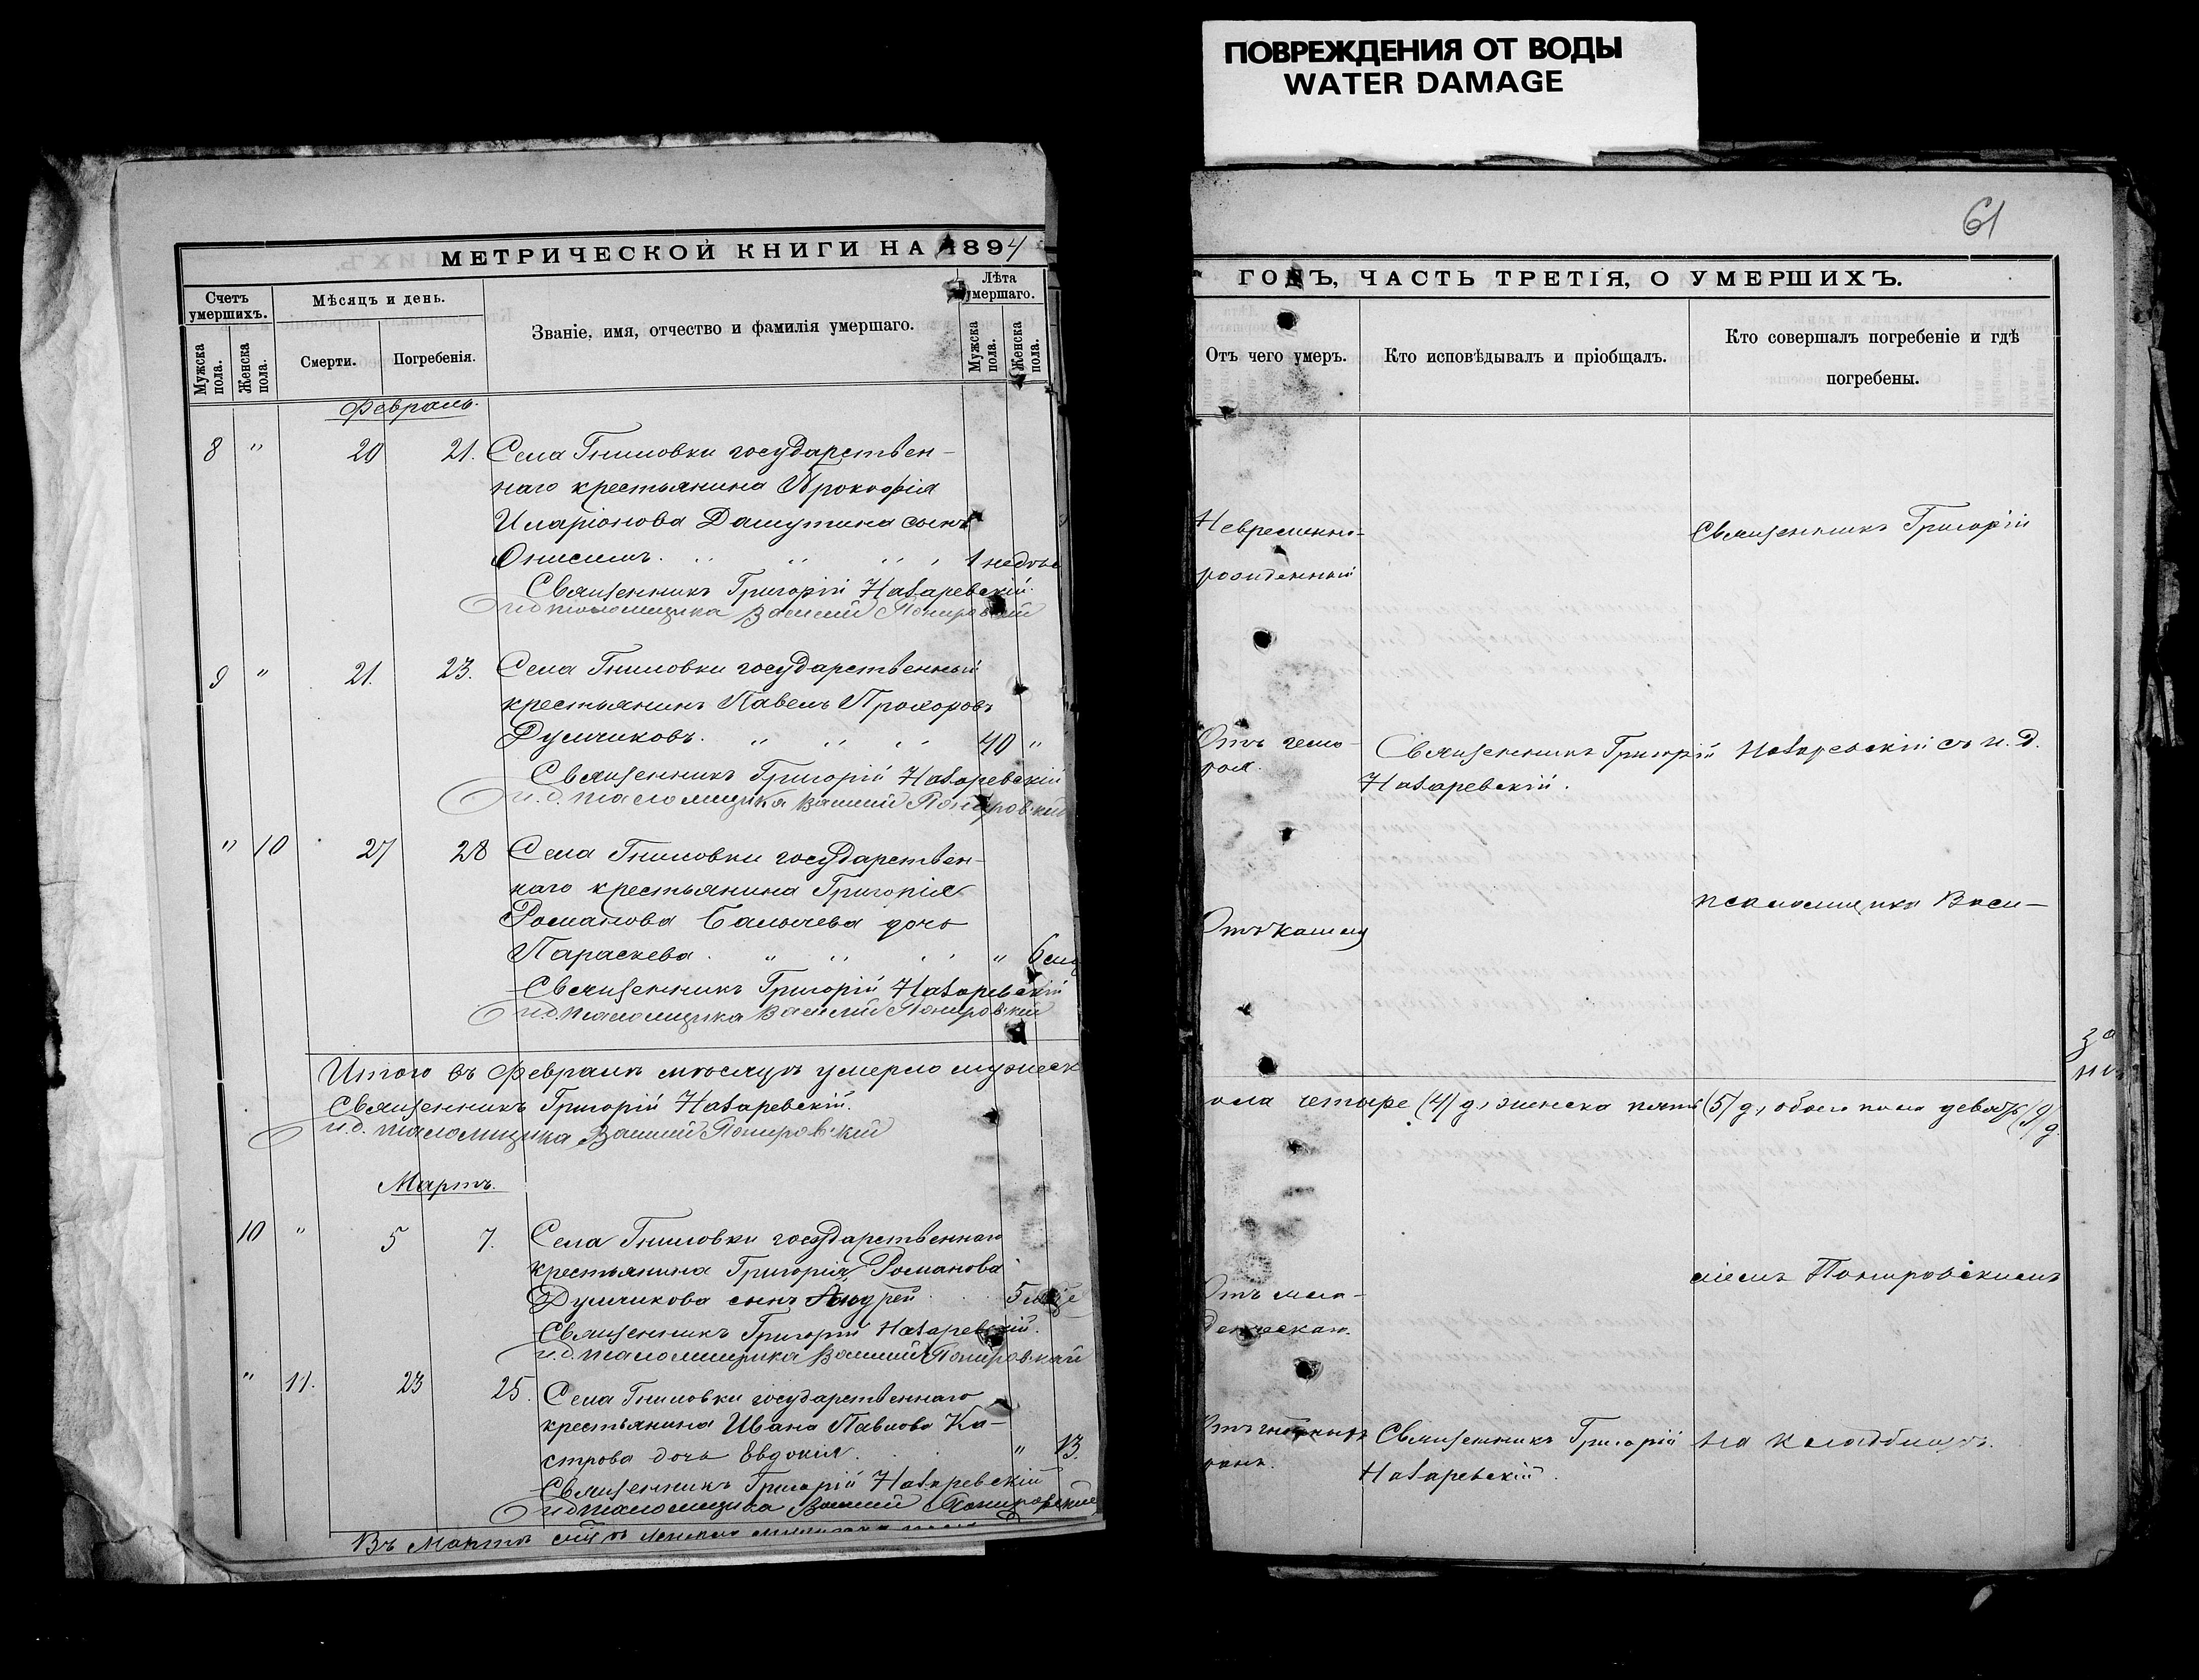 ПОВРЕЖДЕНИЯ ОТ ВОДЫ
WATER DAMAGE
61
МЕТРИЧЕСКОЙ КНИГИ НА 1894
Счетъ умершихъ.
Мужска пола.
Женска пола.
Мѣсяцъ и день.
Смерти.
Погребенія.
Званіе, имя, отчество и фамилія умершаго.
Лѣта умершаго.
Мужска пола.
Женска пола.
Февраль.
8 " 20 21. Села Гниловки государствен-
наго крестьянина Прокофія
Иларіонова Дашутина сынъ
Онисимъ. 1 недѣл
Священникъ Григорій Назаревскій.
и.д. псаломщика Василій Понировскій
9 " 21. 23. Села Гниловки государственный
крестьянинъ Павелъ Прохоровъ
Думчиковъ. 40 "
Священникъ Григорій Назаревскій
и.д. псаломщика Василій Понировскій
" 10 27 28 Села Гниловки государствен-
наго крестьянина Григорія
Романова дочь
Параскева. " 6 мц
Священникъ Григорій Назаревскій
и.д. псаломщика Василій Понировскій
Итого въ Февралѣ мѣсяцѣ умерло мужеск
Священникъ Григорій Назаревскій.
и.д. псаломщика Василій Понировскій
Мартъ.
10 " 5 7. Села Гниловки государственнаго
крестьянина Григорія Романова
Думчикова сынъ Андрей 5
Священникъ Григорій Назаревскій.
и.д. псаломщика Василій Понировскій
" 11. 23 25. Села Гниловки государственнаго
крестьянина Ивана Павлова Ко-
строва дочь Евдокія. " 13.
Священникъ Григорій Назаревскій
и.д. псаломщика Василій Понировскій
Въ Мартѣ
ГОДЪ, ЧАСТЬ ТРЕТІЯ, О УМЕРШИХЪ.
Отъ чего умеръ.
Кто исповѣдывалъ и пріобщалъ.
Кто совершалъ погребеніе и гдѣ погребены.
Невременно-
рожденный
Священникъ Григорій
Отъ
Священникъ Григорій
Назаревскій.
Назаревскій съ и. д.
Отъ кашлю
псаломщика Васи-
ола четыре (4) д, женска пять (5) д, обоего пола девять (9) д.
Отъ мла-
денческаго.
ліемъ Понировскимъ
Священникъ Григорій
Назаревскій.
на кладбищѣ.
за